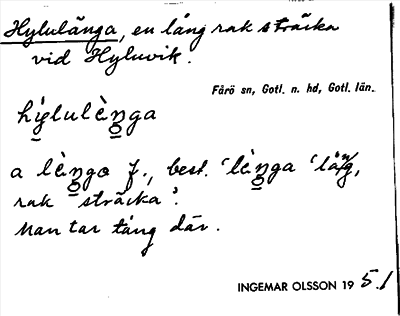 Hylulänga, en lång rak sträcka
vid Hyluvik.
Fårö sn, Gotl. n. hd, Gotl. län.
hý̱lulèṉga
a lèṉgo f., best. 'lèṉga 'lång,
rak sträcka'.
Man tar tång där.
INGEMAR OLSSON 1951